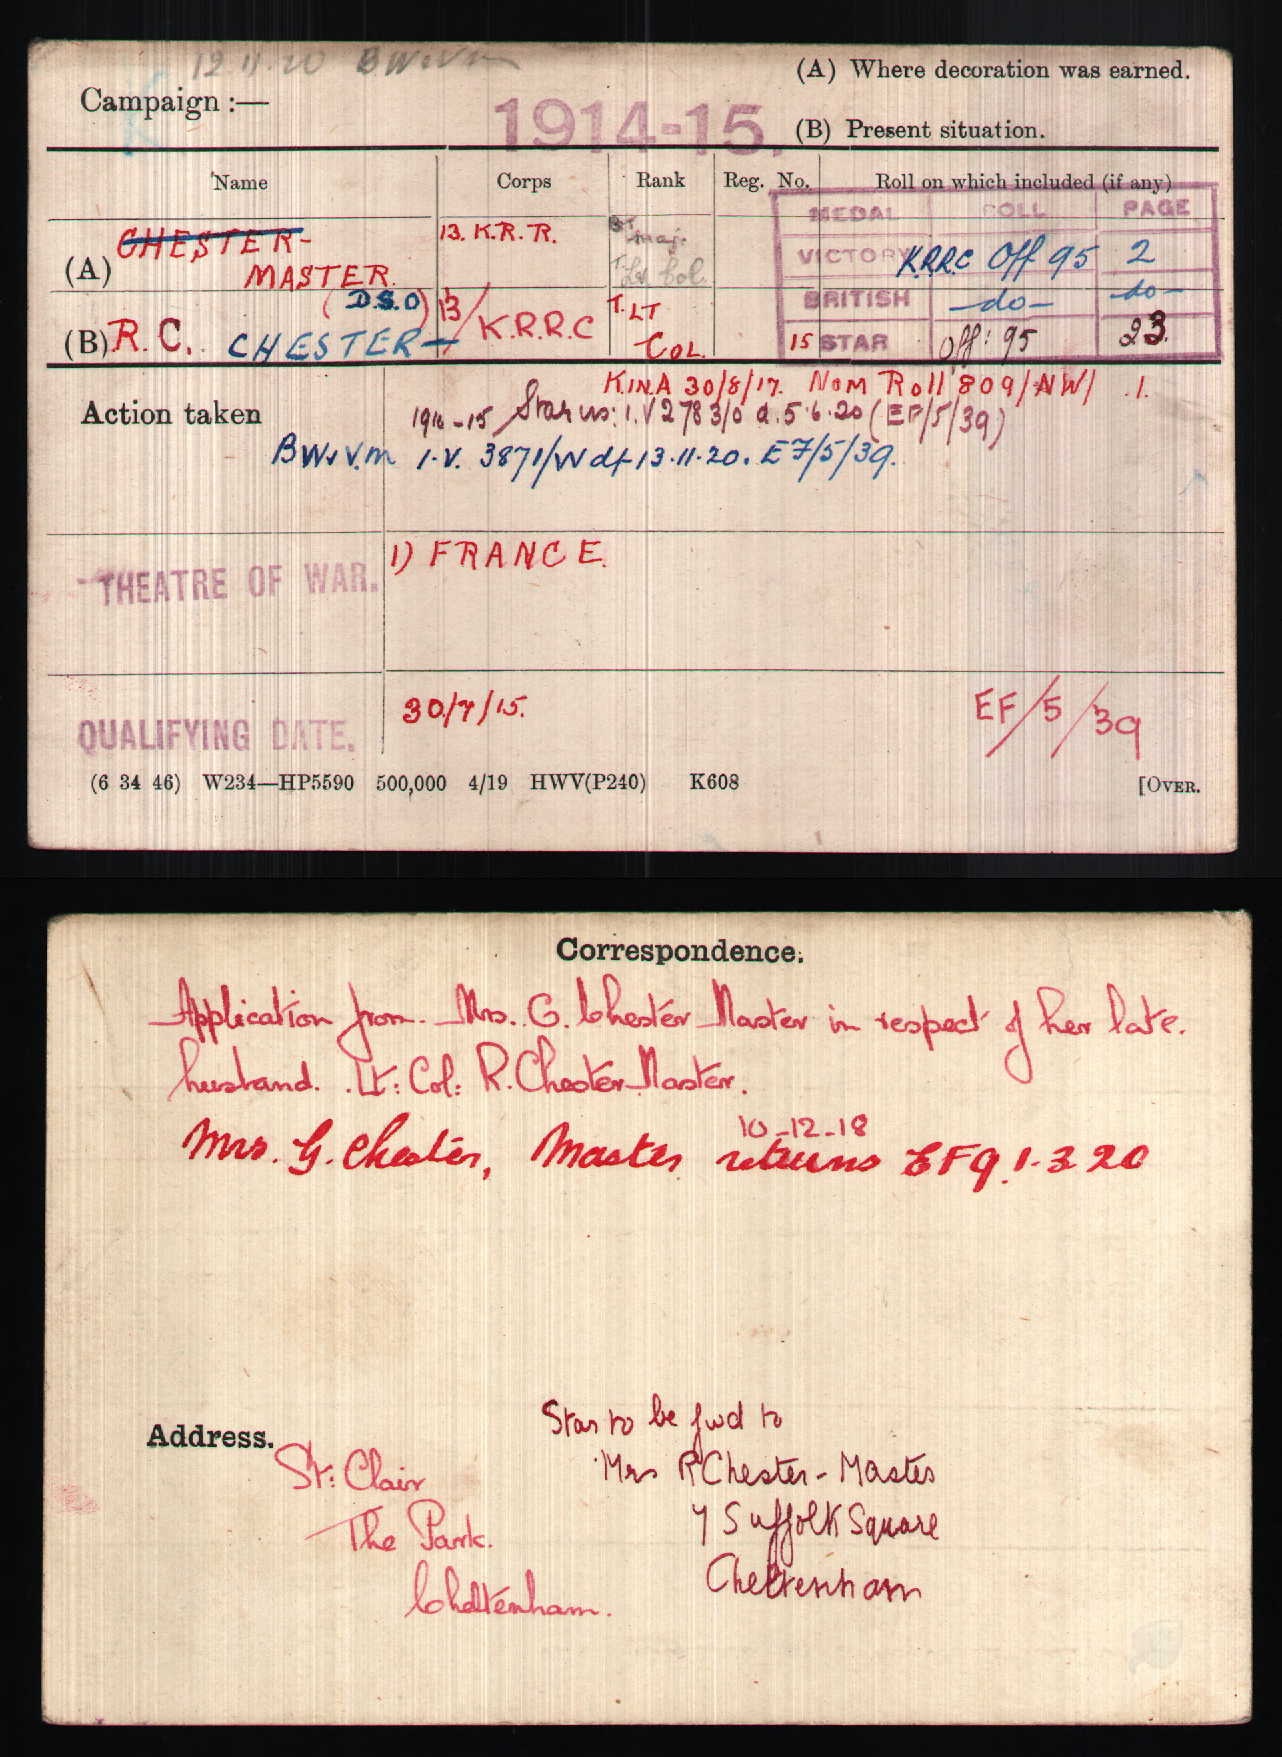 12.11.20 BW&VM
(A) Where decoration was earned.
Campaign :—
1914-15.
(B) Present situation.
Name Corps Rank Reg. No. Roll on which included (if any)
MEDAL ROLL PAGE
CHESTER- 13. K.R.R. Bt Maj.
VICTORY K.R.R.C Off 95 2
(A) MASTER. T. Lt Col.
(D.S.O) BRITISH —do— —do—
(B) R. C. CHESTER— 13/K.R.R.C T. LT COL.
15 STAR Off: 95 23.
K.IN.A 30/8/17. Nom Roll 809/NW/ 1.
Action taken 1914-15 Star vs: I.V 278 3/0 d. 5.6.20 (EF/5/39)
BW&V.M I.V. 3871/W df 13.11.20. EF/5/39.
THEATRE OF WAR. 1) FRANCE.
QUALIFYING DATE. 30/7/15. EF/5/39
(6 34 46) W234—HP5590 500,000 4/19 HWV(P240) K608 [OVER.
Correspondence.
Application from. Mrs. G. Chester Master in respect of her late.
husband. Lt: Col: R. Chester-Master.
10-12-18
Mrs. G. Chester, Master returns EF9. 1.3 20
Star to be fwd to
Address. St: Clair Mrs R Chester-Master
The Park. 7 Suffolk Square
Cheltenham. Cheltenham